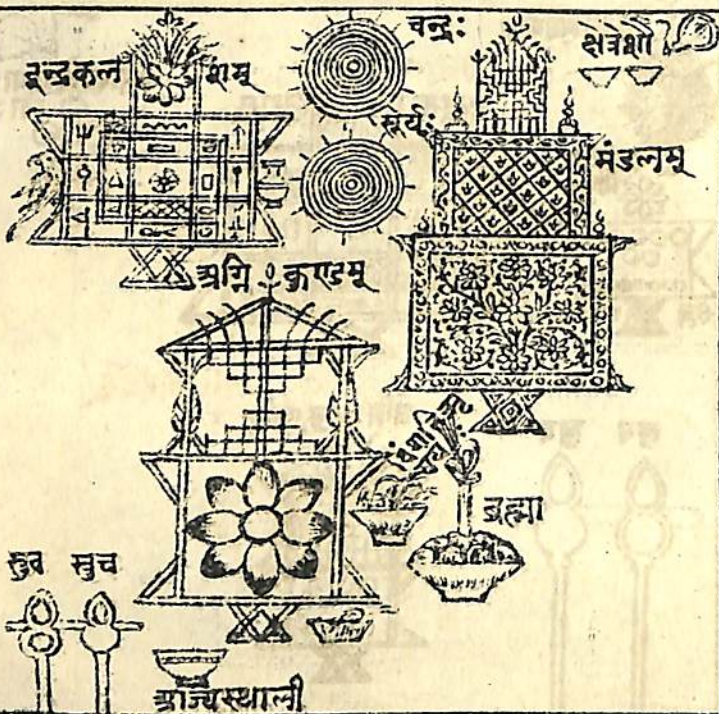 इन्द्रकल शम्
चन्द्रः
क्षेत्रेशौ
सूर्यः
मंडलम्
अग्नि कुण्डम्
ब्रह्मा
स्रुव स्रुच
आज्यस्थाली